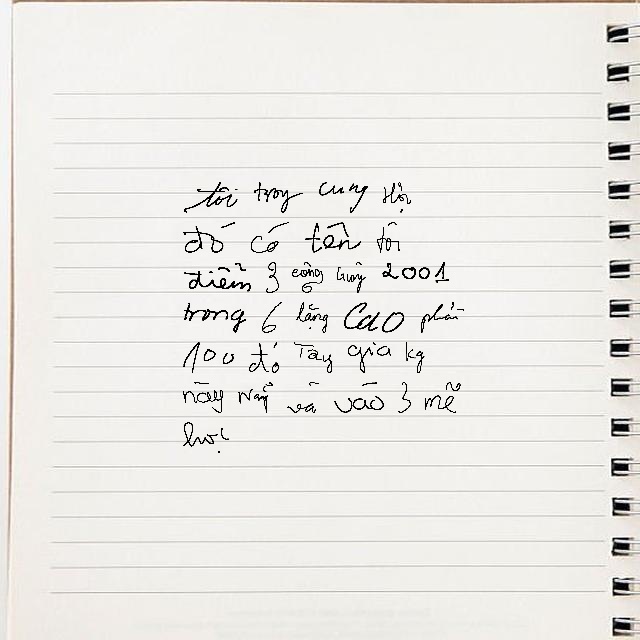 tôi trong cung Hội
đó có tên tôi
điểm 3 công 2001
trong 6 lặng Cao phải
100 đó Tay gia kg
này và vào 3 mẽ